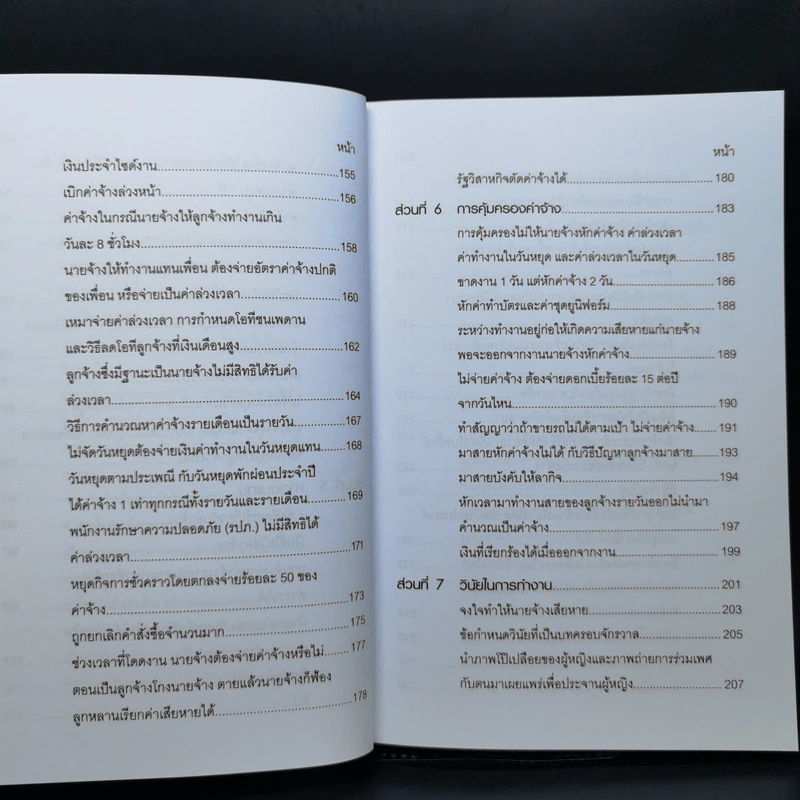 หน้า
เงินประจำไซด์งาน.....155
เบิกค่าจ้างล่วงหน้า.....156
ค่าจ้างในกรณีนายจ้างให้ลูกจ้างทำงานเกิน
วันละ 8 ชั่วโมง.....158
นายจ้างให้ทำงานแทนเพื่อน ต้องจ่ายอัตราค่าจ้างปกติ
ของเพื่อน หรือจ่ายเป็นค่าล่วงเวลา.....160
เหมาจ่ายค่าล่วงเวลา การกำหนดโอทีชนเพดาน
และวิธีลดโอทีลูกจ้างที่เงินเดือนสูง.....162
ลูกจ้างซึ่งมีฐานะเป็นนายจ้างไม่มีสิทธิได้รับค่า
ล่วงเวลา.....164
วิธีการคำนวณหาค่าจ้างรายเดือนเป็นรายวัน.....167
ไม่จัดวันหยุดต้องจ่ายเงินค่าทำงานในวันหยุดแทน..168
วันหยุดตามประเพณี กับวันหยุดพักผ่อนประจำปี
ได้ค่าจ้าง 1 เท่าทุกกรณีทั้งรายวันและรายเดือน.....169
พนักงานรักษาความปลอดภัย (รปภ.) ไม่มีสิทธิได้
ค่าล่วงเวลา.....171
หยุดกิจการชั่วคราวโดยตกลงจ่ายร้อยละ 50 ของ
ค่าจ้าง.....173
ถูกยกเลิกคำสั่งซื้อจำนวนมาก.....175
ช่วงเวลาที่โดดงาน นายจ้างต้องจ่ายค่าจ้างหรือไม่.....177
ตอนเป็นลูกจ้างโกงนายจ้าง ตายแล้วนายจ้างก็ฟ้อง
ลูกหลานเรียกค่าเสียหายได้.....178
หน้า
รัฐวิสาหกิจตัดค่าจ้างได้.....180
ส่วนที่ 6 การคุ้มครองค่าจ้าง.....183
การคุ้มครองไม่ให้นายจ้างหักค่าจ้าง ค่าล่วงเวลา
ค่าทำงานในวันหยุด และค่าล่วงเวลาในวันหยุด.....185
ขาดงาน 1 วัน แต่หักค่าจ้าง 2 วัน.....186
หักค่าทำบัตรและค่าชุดยูนิฟอร์ม.....188
ระหว่างทำงานอยู่ก่อให้เกิดความเสียหายแก่นายจ้าง
พอจะออกจากงานนายจ้างหักค่าจ้าง.....189
ไม่จ่ายค่าจ้าง ต้องจ่ายดอกเบี้ยร้อยละ 15 ต่อปี
จากวันไหน.....190
ทำสัญญาว่าถ้าขายรถไม่ได้ตามเป้า ไม่จ่ายค่าจ้าง...191
มาสายหักค่าจ้างไม่ได้ กับวิธีปัญหาลูกจ้างมาสาย.....193
มาสายบังคับให้ลากิจ.....194
หักเวลามาทำงานสายของลูกจ้างรายวันออกไม่นำมา
คำนวณเป็นค่าจ้าง.....197
เงินที่เรียกร้องได้เมื่อออกจากงาน.....199
ส่วนที่ 7 วินัยในการทำงาน.....201
จงใจทำให้นายจ้างเสียหาย.....203
ข้อกำหนดวินัยที่เป็นบทครอบจักรวาล.....205
นำภาพโป๊เปลือยของผู้หญิงและภาพถ่ายการร่วมเพศ
กับตนมาเผยแพร่เพื่อประจานผู้หญิง.....207